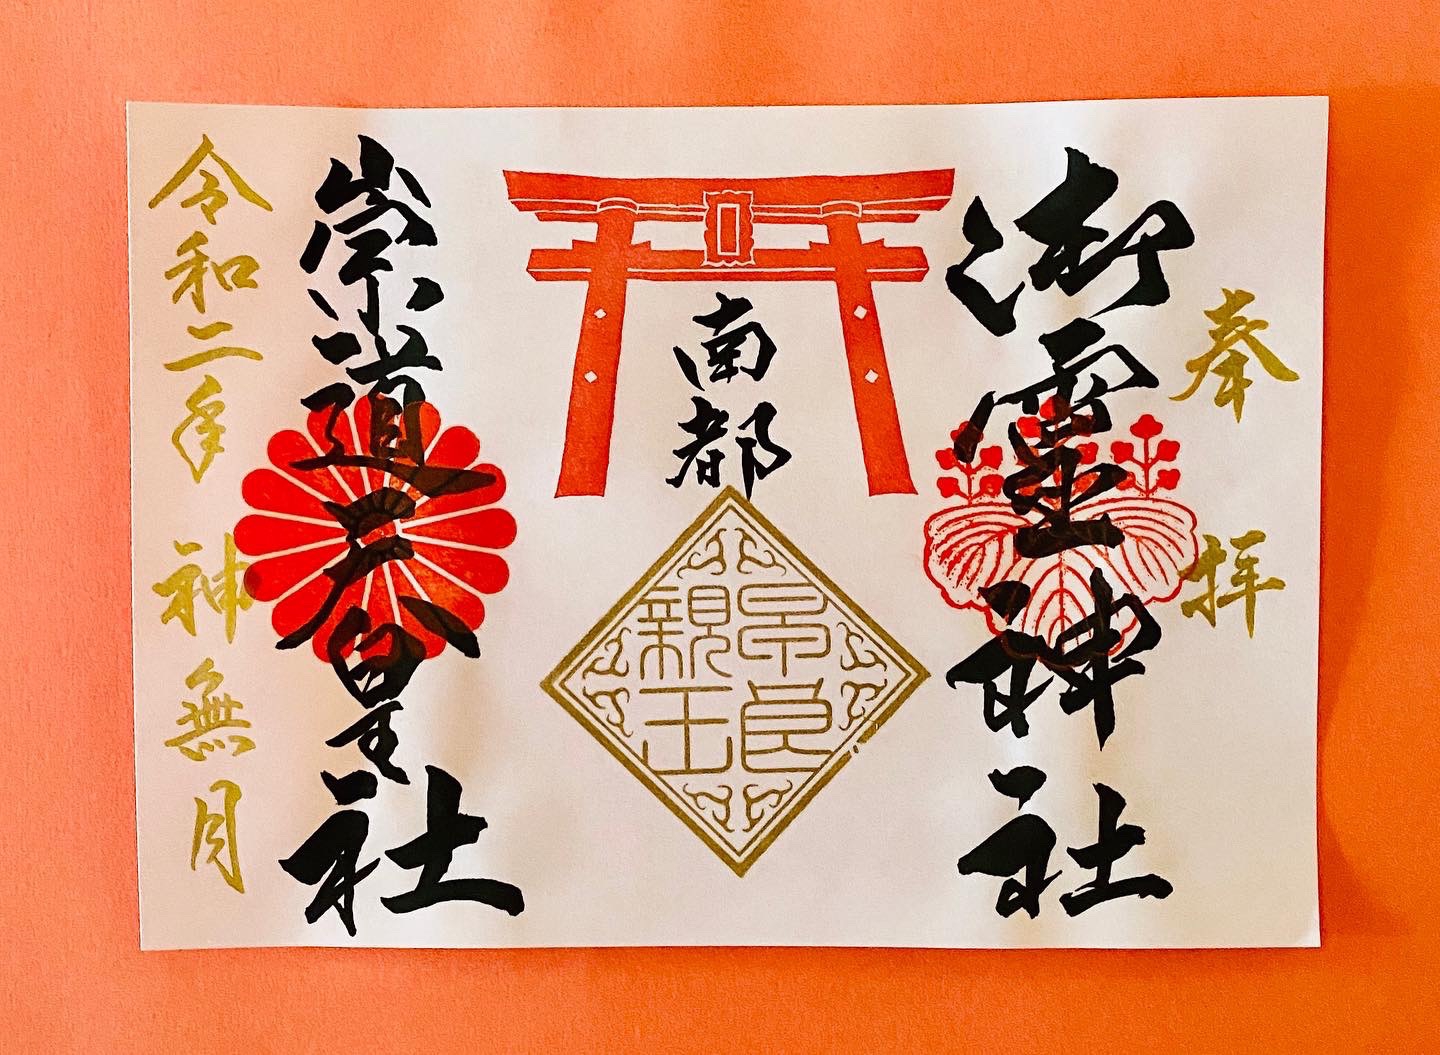 奉拝
御霊神社
南都
早良
親王
崇道天皇社
令和二年 神無月